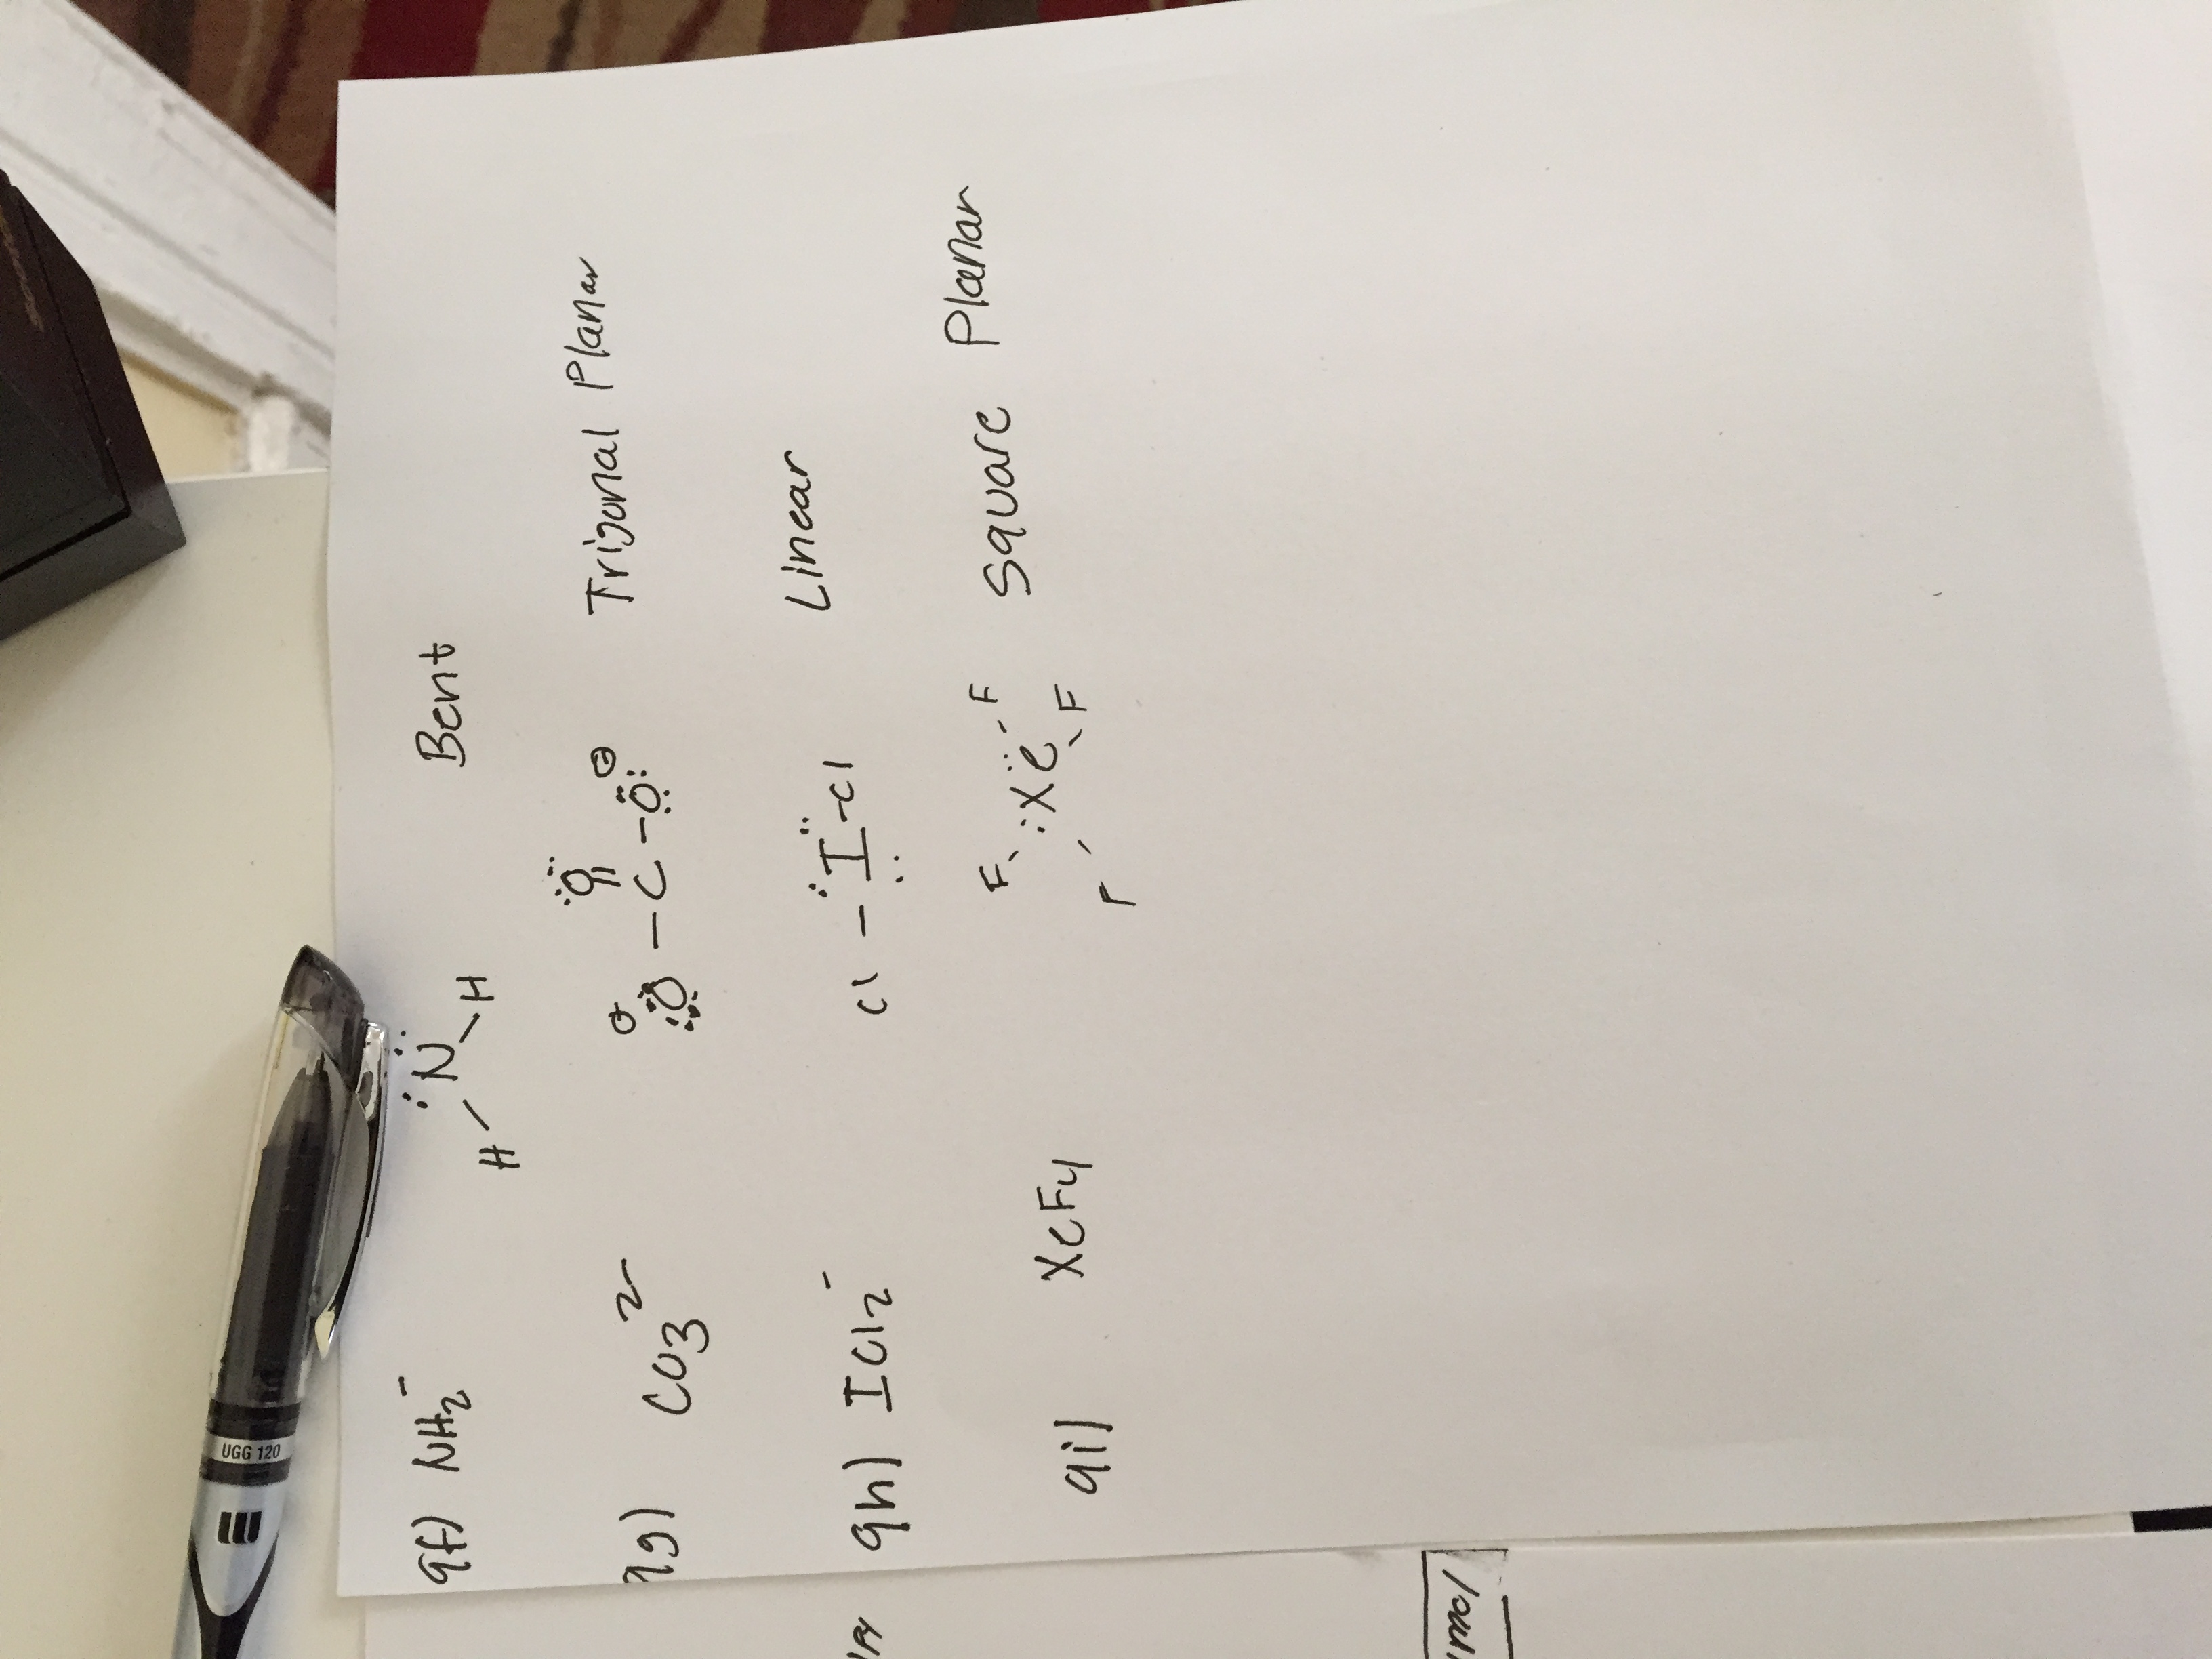 9f) NH2⁻ H N H Bent
9g) CO3²⁻ O C O O Trigonal Planar
9h) ICl2⁻ Cl - I - Cl Linear
9i) XeF4 F F Xe F F Square Planar
UGG 120